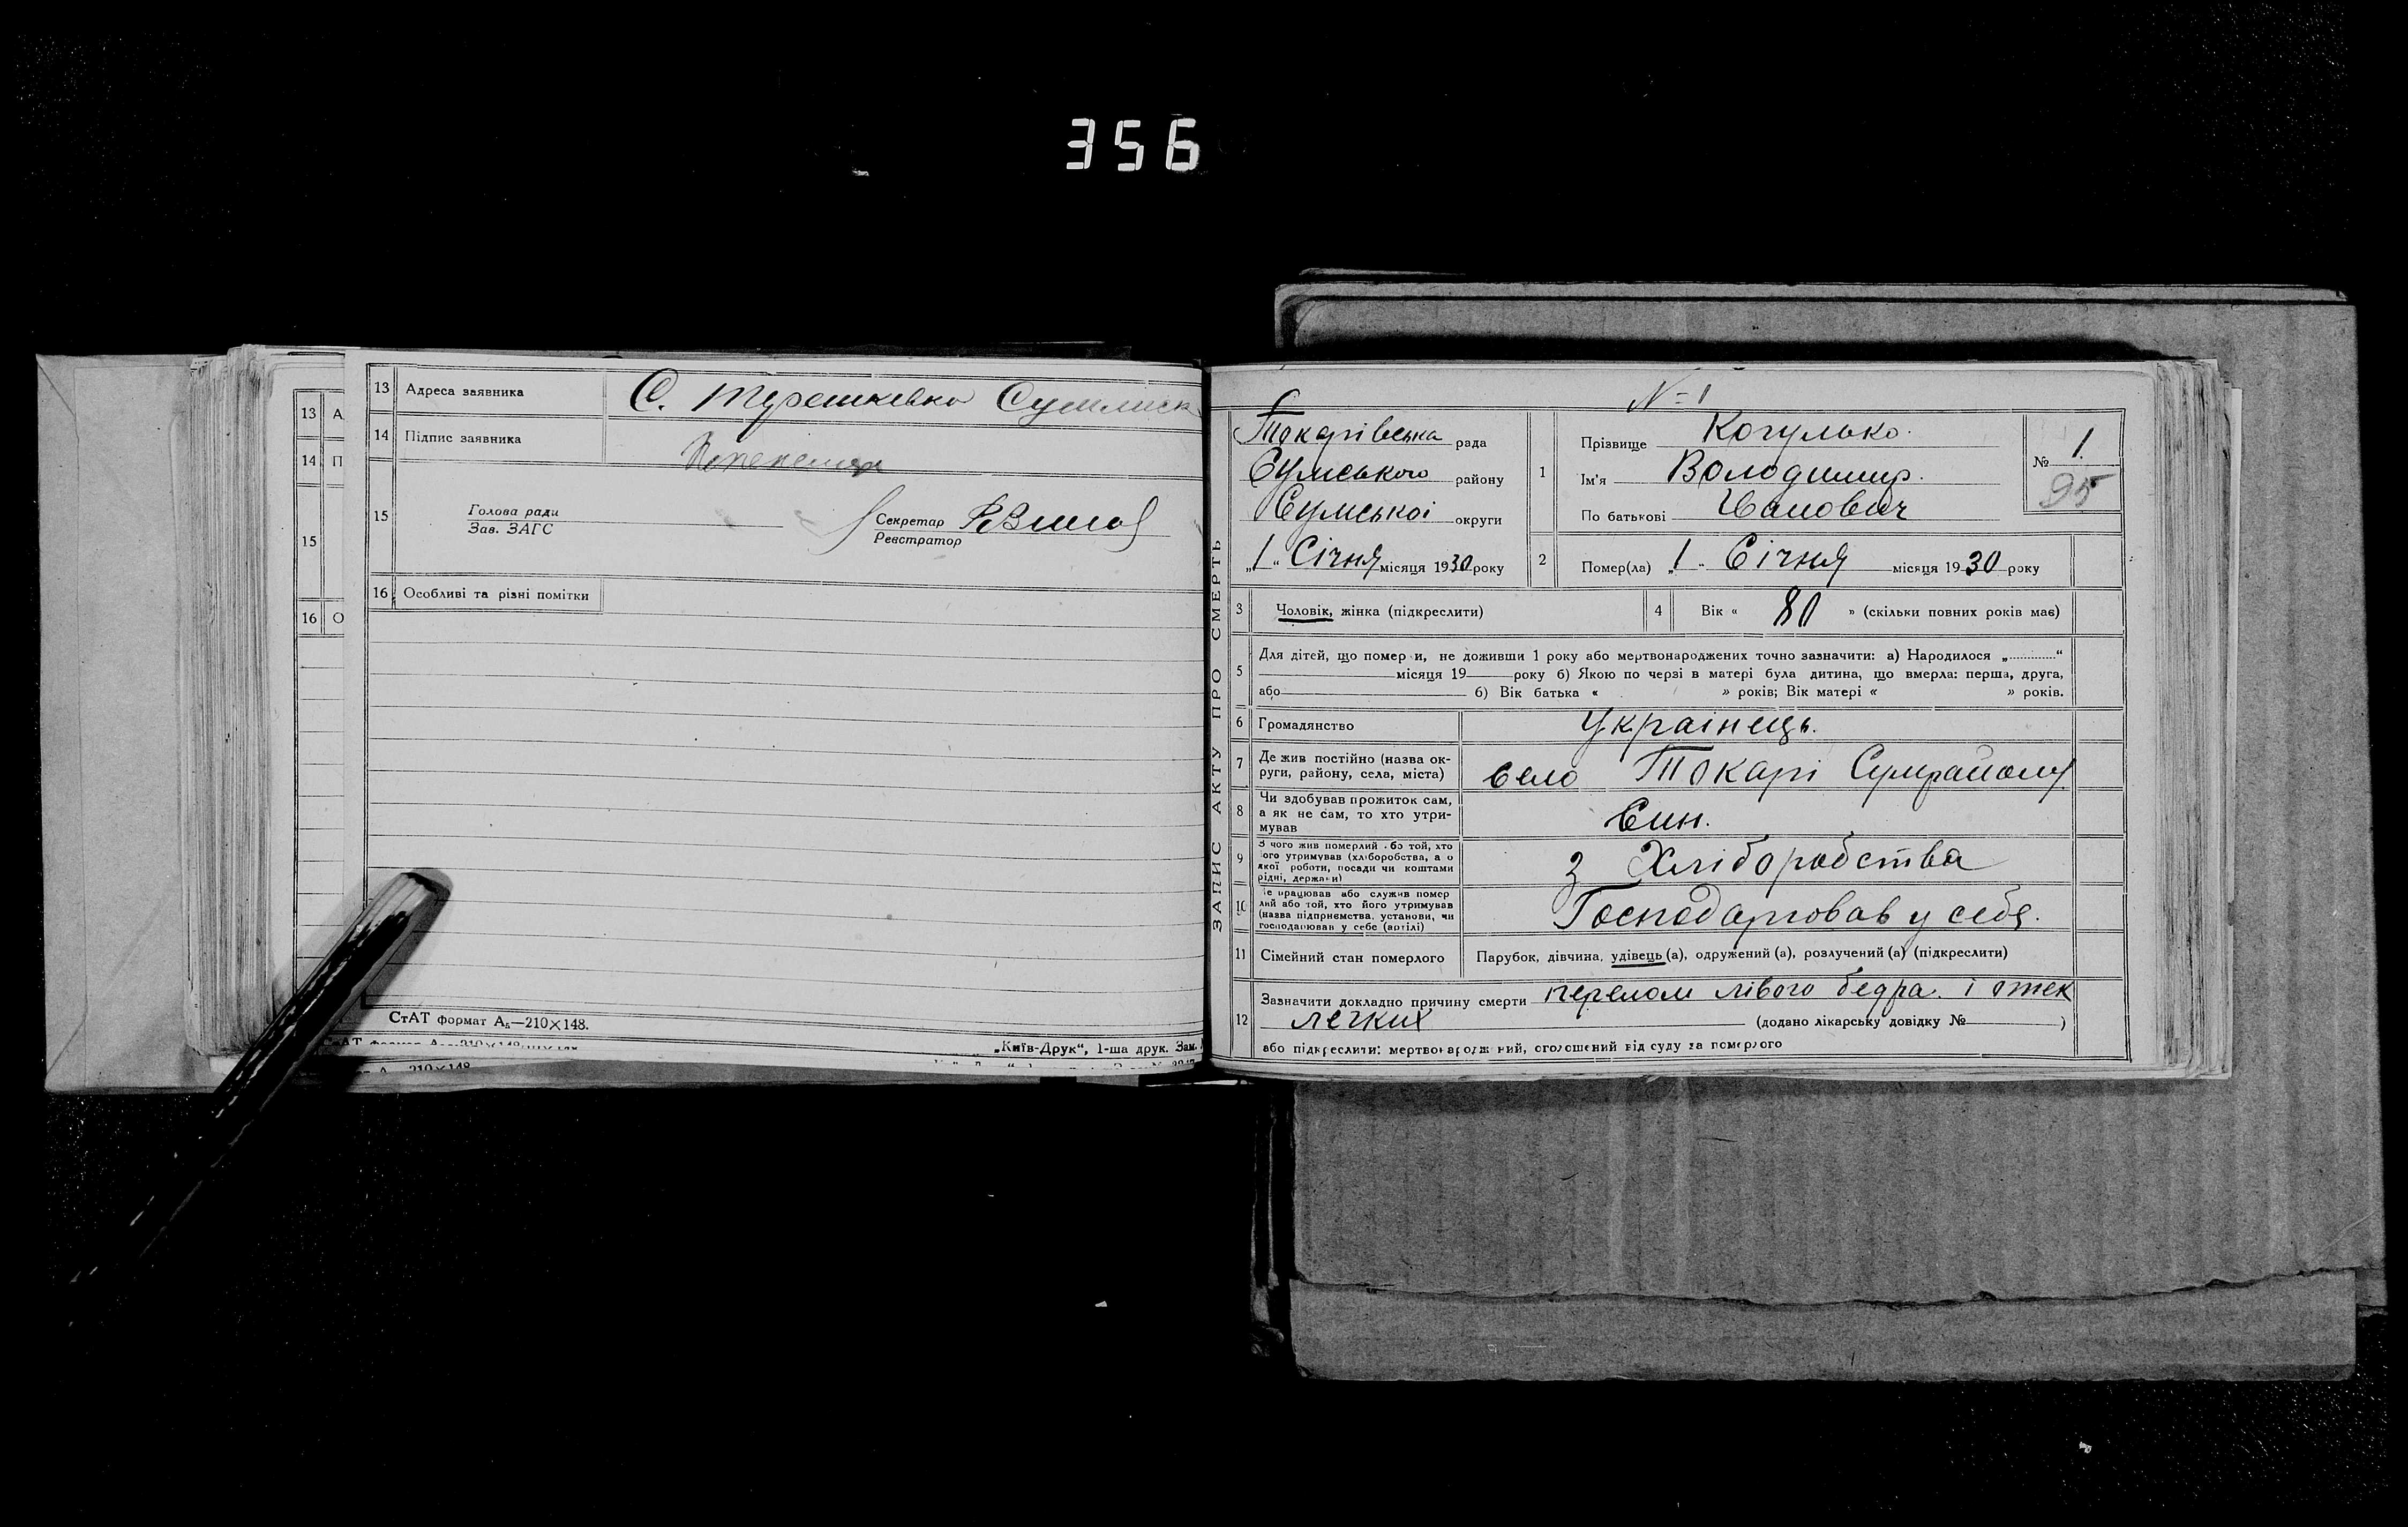 356
13
А
14
П
15
16
О
13 Адреса заявника С. Терешківка
14 Підпис заявника
15 Голова ради
Зав. ЗАГС
Секретар
Реєстратор
16 Особливі та різні помітки
СтАТ формат А₅—210×148.
„Київ-Друк“, 1-ша друк. Зам.
210×148
ЗАПИС АКТУ ПРО СМЕРТЬ
N=1
Токарівська рада
Сумського району
Сумської округи
„1“ Січня місяця 1930 року
1 Прізвище Когулько.
Ім'я Володимир.
По батькові Іванович
№ 1.
95
2 Помер(ла) „1“ Січня місяця 1930 року
3 Чоловік, жінка (підкреслити)
4 Вік « 80 » (скільки повних років має)
5 Для дітей, що помер и, не доживши 1 року або мертвонароджених точно зазначити: а) Народилося „............“
місяця 19 року б) Якою по черзі в матері була дитина, що вмерла: перша, друга,
або б) Вік батька « » років; Вік матері « » років.
6 Громадянство Українець.
7 Де жив постійно (назва ок-
руги, району, села, міста) село Токарі Сумрайону
8 Чи здобував прожиток сам,
а як не сам, то хто утри-
мував Син.
9 З чого жив померлий або той, хто
його утримував (хліборобства, а о
якої роботи, посади чи коштами
рідні, держави) з Хліборобства
10 Де працював або служив помер
лий або той, хто його утримував
(назва підприємства, установи, чи
господарював у себе (артілі) Господарював у себе.
11 Сімейний стан померлого Парубок, дівчина, удівець (а), одружений (а), розлучений (а) (підкреслити)
12 Зазначити докладно причину смерти перелом лівого бедра. і отек
легких (додано лікарську довідку № )
або підкреслити: мертвонароджений, оголошений від суду за померлого